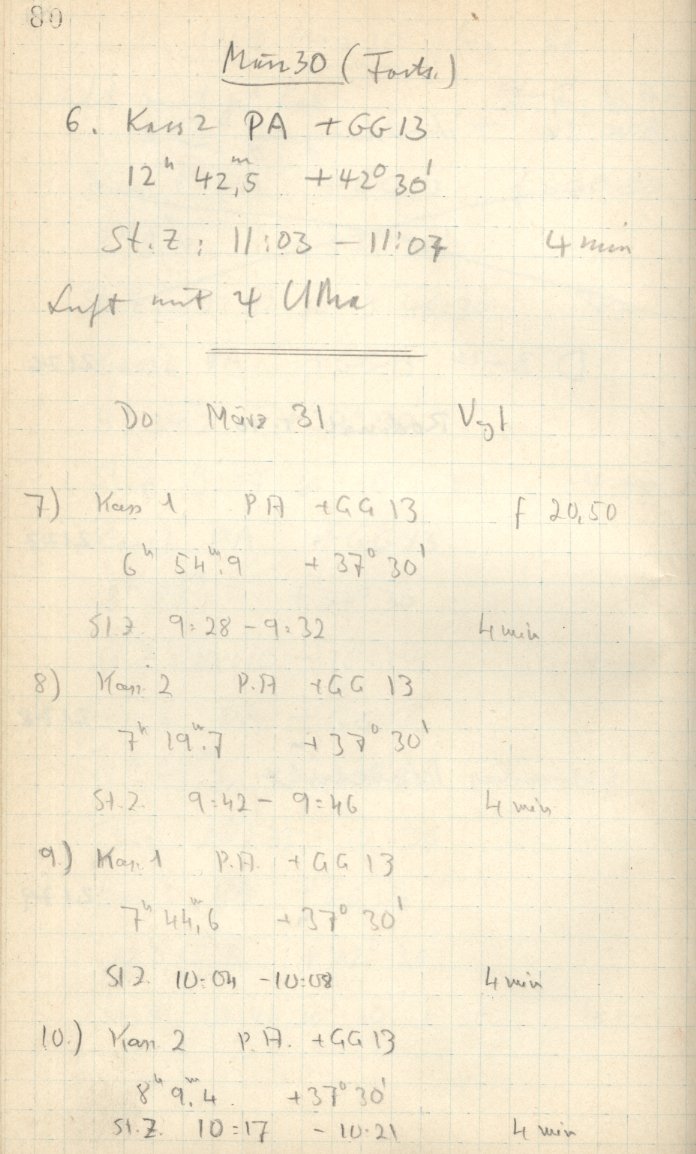 80
März 30 (Forts.)
6. Kass 2 PA + GG 13
12ʰ 42,ᵐ5 +42° 30'
St.Z: 11:03 – 11:07 4 min
Luft mit 4 Uhr
Do März 31 Vogt
7) Kass 1 P A + GG 13 f 20,50
6ʰ 54ᵐ.9 + 37° 30'
St Z. 9:28 – 9:32 4 min
8) Kass. 2 P.A + GG 13
7ʰ 19ᵐ.7 + 37° 30'
St.Z. 9:42 – 9:46 4 min
9.) Kass. 1 P.A. + GG 13
7ʰ 44,6 + 37° 30'
St Z. 10:04 – 10:08 4 min
10.) Kass 2 P.A. + GG 13
8ʰ 9.ᵐ4 + 37° 30'
St.Z. 10:17 – 10.21 4 min